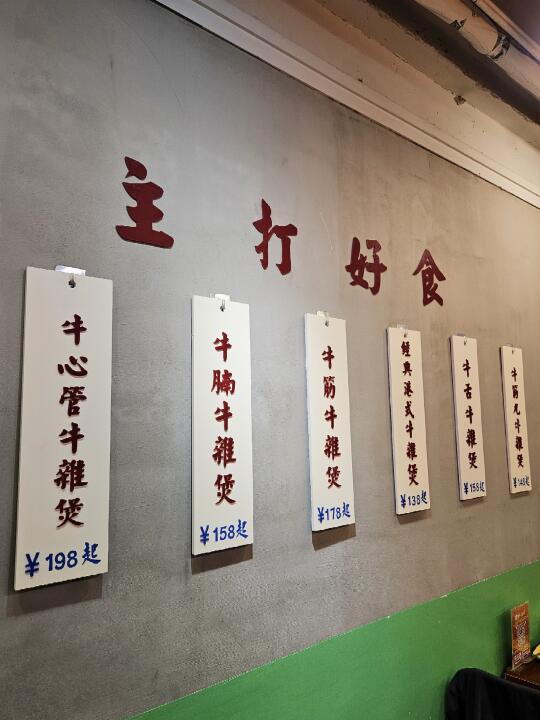 主打好食
牛心管牛雜煲
¥198起
牛腩牛雜煲
¥158起
牛筋牛雜煲
¥178起
經典港式牛雜煲
¥138起
牛舌牛雜煲
¥158起
牛筋丸牛雜煲
¥148起